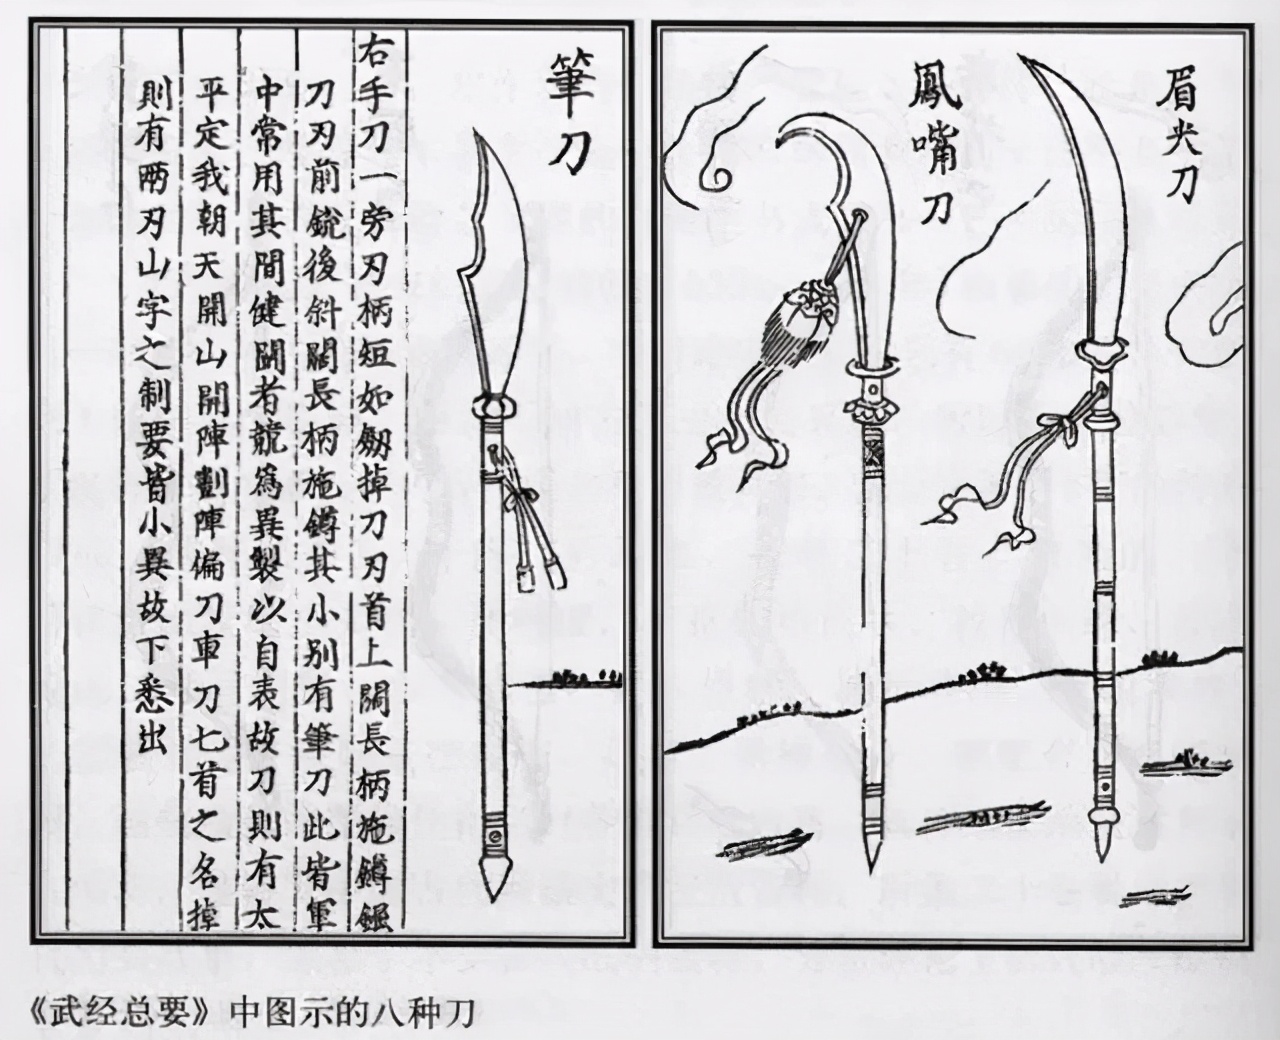 眉尖刀
鳳嘴刀
筆刀
右手刀一旁刃柄短如劔掉刀刃首上闊長柄施鐏
刀刃前銳後斜闊長柄施鐏其小别有筆刀此皆軍
中常用其間健鬬者競爲異製以自表故刀則有太
平定我朝天開山開陣劃陣偏刀車刀七首之名掉
則有兩刃山字之制要皆小異故下悉出
《武经总要》中图示的八种刀